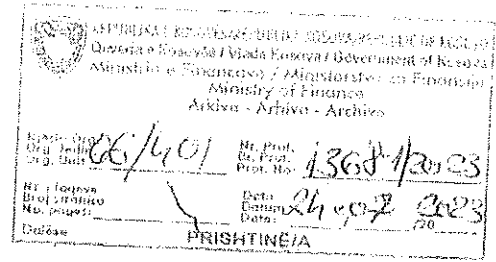 REPUBLIKA E KOSOVËS / REPUBLIKA KOSOVO / REPUBLIC OF KOSOVO
Qeveria e Kosovës / Vlada Kosova / Government of Kosova
Ministria e Financave / Ministarstvo za Finansije
Ministry of Finance
Arkiva - Arhiva - Archive
Org. Unit 06/401
Nr. Prot. Br. Prot. Prot. No: 1368-1/2023
Nr. i faqeve
Broj stranica
No. pages:
Data Datum Date: 24.07 2023
20
PRISHTINË/A